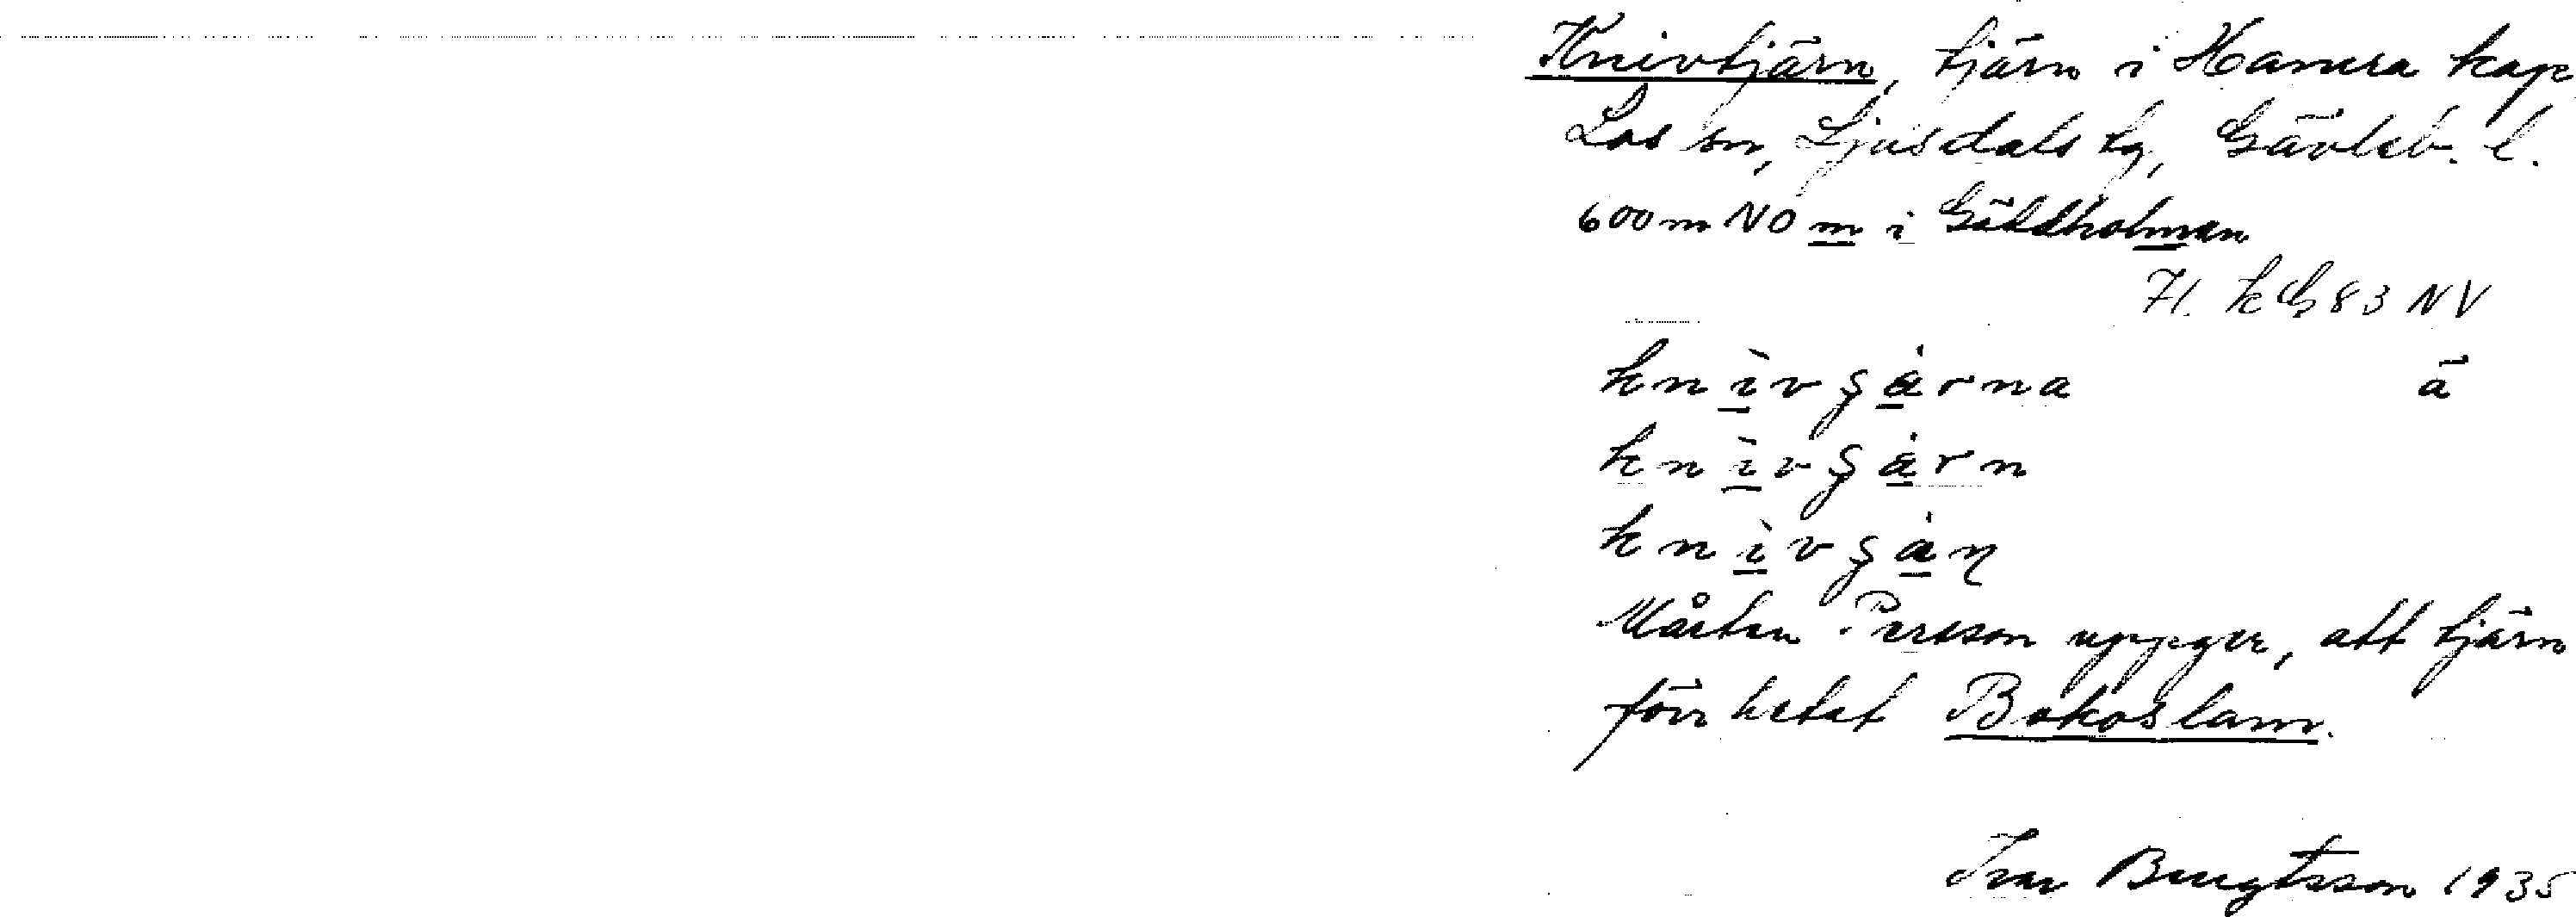 Knivtjärn, tjärn i Hamra kap,
Los sn, Ljusdals tg, Gävleb. l.
600 m NO m i Gäddholmen
71. kb 83 NV
knivşärna ä
knivşärn
knivşäɳ
Mårten Persson uppger, att tjärn
förr hetat Bokoslam.
Ivar Bengtsson 1935